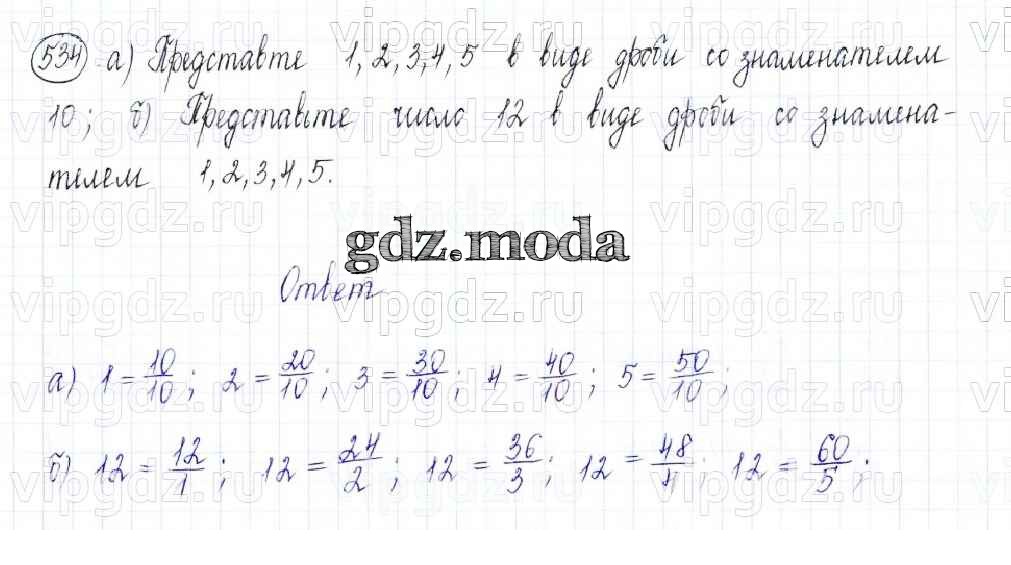 534 а) Представте 1, 2, 3, 4, 5 в виде дроби со знаменателем
10; б) Представьте число 12 в виде дроби со знамена-
телем 1, 2, 3, 4, 5.
gdz.moda
Ответ
а) 1 = 10/10; 2 = 20/10; 3 = 30/10; 4 = 40/10; 5 = 50/10;
б) 12 = 12/1; 12 = 24/2; 12 = 36/3; 12 = 48/4; 12 = 60/5;
vipgdz.ru